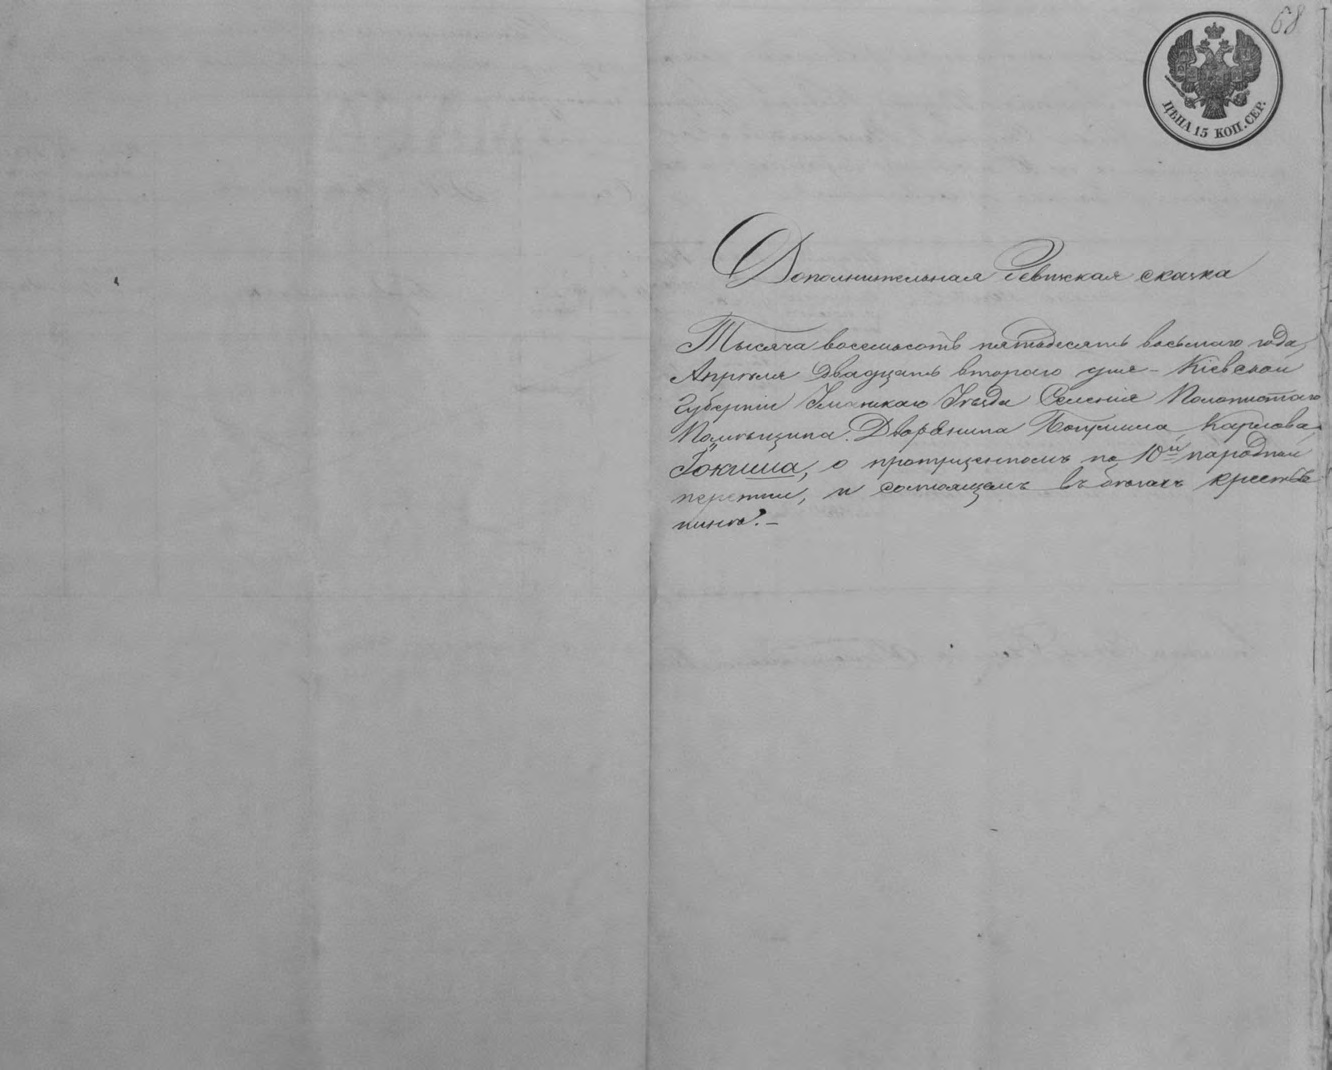 68
ЦѢНА 15 КОП. СЕР.
Дополнительная Ревизская сказка
Тысяча восемьсотъ пятьдесятъ восьмаго года,
Апрѣля двадцать втораго дня – Кіевской
Губерніи Уманскаго Уѣзда Селенія
Помѣщика Дворянина Карлова
о пропущенномъ по 10й народной
переписи, и состоящемъ въ бѣгахъ крестья
нинѣ. –